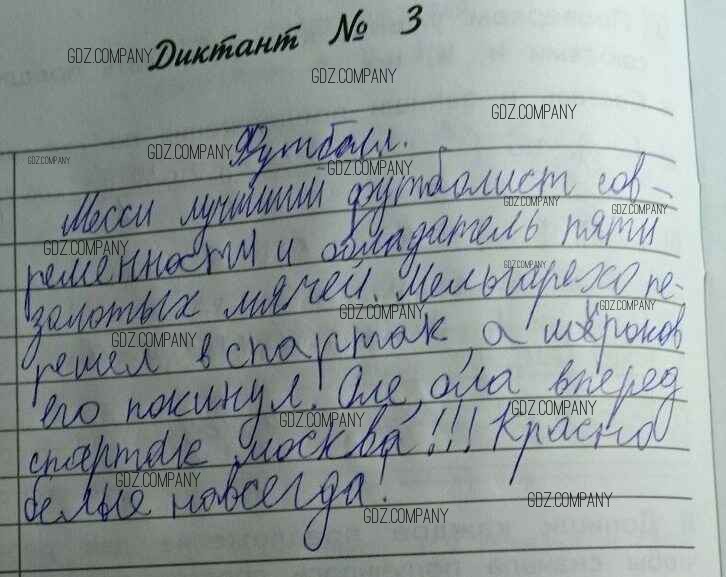 Диктант № 3
GDZ.COMPANY
GDZ.COMPANY
GDZ.COMPANY
Футболл.
GDZ.COMPANY
GDZ.COMPANY
GDZ.COMPANY
Месси лучшиий футболист сов-
GDZ.COMPANY
GDZ.COMPANY
GDZ.COMPANY
ременности и обладатель пяти
золотых мячей. Мельгарехо пе-
GDZ.COMPANY
GDZ.COMPANY
GDZ.COMPANY
GDZ.COMPANY
решел в спартак, а широков
GDZ.COMPANY
его покинул. Оле, ола вперед
GDZ.COMPANY
GDZ.COMPANY
спартак москва!!! Красно
GDZ.COMPANY
белые навсегда!
GDZ.COMPANY
GDZ.COMPANY